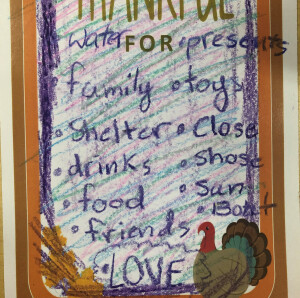 THANKFUL
water FOR •presents
•family •toys
•Shelter •Close
•drinks •Shose
•food •Sun
•friends •Boat
•LOVE